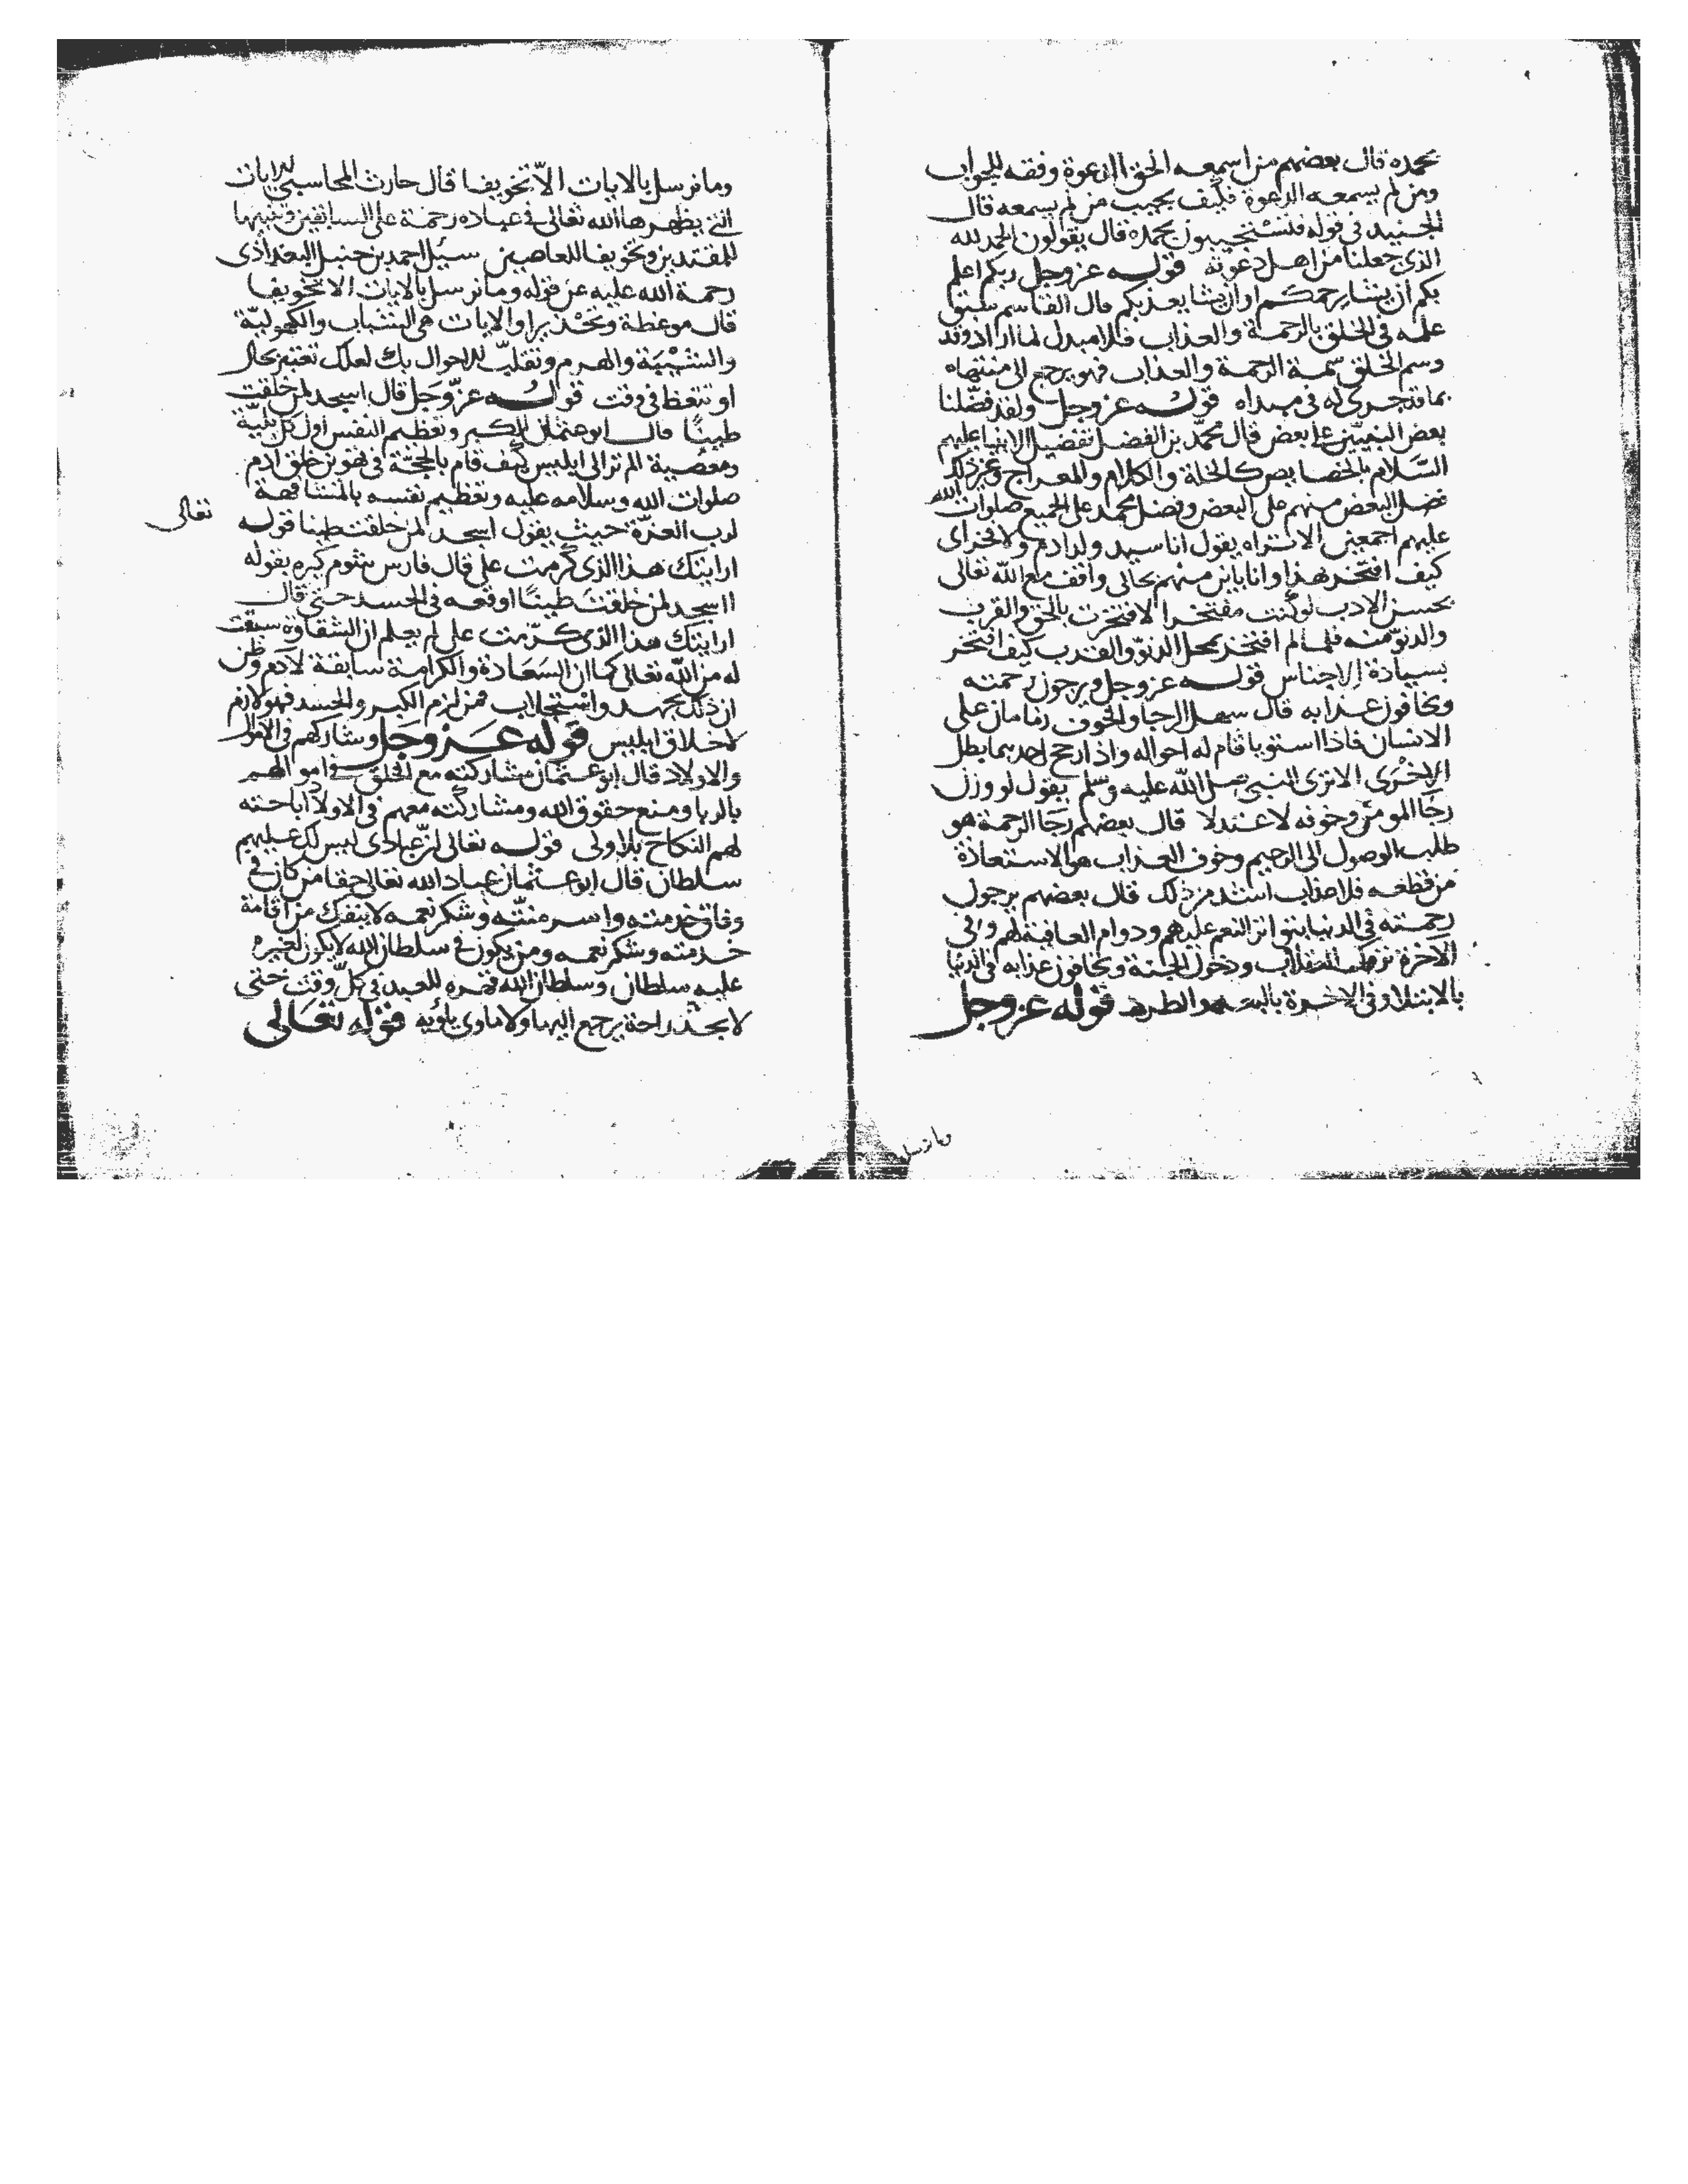 بحمده قال بعضهم من اسمعه الحق الدعوة وفقه للجواب
ومن لم يسمعه الدعوة فكيف يجيب من لم يسمعه قال
الجنيد في قوله فتستجيبون بحمده قال يقولون الحمد لله
الذي جعلنا من اهل دعوته قوله عز وجل ربكم اعلم
بكم ان يشا يرحمكم او ان يشا يعذبكم قال القاسم سبق
علمه في الخلق بالرحمة والعذاب فلا مبدل لما اراد وقد
وسم الخلق سمة الرحمة والعذاب فهو يرجع الى منتهاه
بما قد جرى له في مبداه قوله عز وجل ولقد فضلنا
بعض النبيين على بعض قال محمد بن الفضل تفضيل الانبيا عليهم
السلام بالخصايص كالخلة والكلام والمعراج وغير ذلك
فضل البعض منهم على البعض وفضل محمد على الجميع صلوات الله
عليهم اجمعين الا تراه يقول انا سيد ولد ادم ولا فخر اى
كيف افتخر بهذا وانا باين منهم بحالى واقف مع الله تعالى
بحسن الادب لو كنت مفتخرا لافتخرت بالحق والقرب
والدنو منه فلما لم افتخر بمحل الدنو والقرب كيف افتخر
بسيادة الاجناس قوله عز وجل ويرجون رحمته
ويخافون عذابه قال سهل الرجا والخوف زمامان على
الانسان فاذا استويا قام له احواله واذا رجح احدهما بطل
الاخرى الا ترى النبي صلى الله عليه وسلم يقول لو وزن
رجا المومن وخوفه لاعتدلا قال بعضهم رجا الرحمة هو
طلب الوصول الى الرحيم وخوف العذاب هو الاستعاذة
من قطعه فلا عذاب اشد من ذلك قال بعضهم يرجون
رحمته في الدنيا بتواتر النعم عليهم ودوام العافية لهم وفي
الاخرة ودخول الجنة ويخافون عذابه في الدنيا
بالابتلا وفي الاخرة بالبعد والطرد قوله عز وجل
وما نرسل
وما نرسل بالايات الا تخويفا قال حارث المحاسبي الايات
التي يظهرها الله تعالى في عباده رحمة على السابقين وتنبيها
للمقتدين وتخويفا للعاصين سيل احمد بن حنبل البغدادى
رحمة الله عليه عن قوله وما نرسل بالايات الا تخويفا
قال موعظة وتحذيرا والايات هي الشباب والكهولية
والشيبة والهرم وتقلب الاحوال بك لعلك تعتبر بحال
او تتعظ في وقت قوله عز وجل قال ااسجد لمن خلقت
طينا قال ابو عثمان الكبر وتعظيم النفس اول كل بلية
ومعصية الم تر الى ابليس كيف قام بالحجة في تهوين خلق ادم
صلوات الله وسلامه عليه وتعظيم نفسه بالمشافهة
لرب العزة حيث يقول ااسجد لمن خلقت طينا قوله
تعالى
ارايتك هذا الذي كرمت على قال فارس شوم كبره بقوله
ااسجد لمن خلقت طينا اوقعه في الحسد حتى قال
ارايتك هذا الذي كرمت على لم يعلم ان الشقاوة سبقت
له من الله تعالى كما ان السعادة والكرامة سابقة لادم وظن
ان ذلك بجهد واستجلاب فمن لزم الكبر والحسد فهو لازم
لاخلاق ابليس قوله عز وجل وشاركهم في الاموال
والاولاد قال ابو عثمان مشاركته مع الخلق في اموالهم
بالربا ومنع حقوق الله ومشاركته معهم في الاولاد اباحته
لهم النكاح بلا ولى قوله تعالى ان عبادى ليس لك عليهم
سلطان قال ابو عثمان عباد الله تعالى حقا من كان في
وثاق خدمته واسر منته وشكر نعمه لا ينفك من اقامة
خدمته وشكر نعمه ومن يكون في سلطان الله لا يكون لغيره
عليه سلطان وسلطان الله قهره للعبد في كل وقت حتى
لا يجد راحة يرجع اليها ولا ماوى ياويه قوله تعالى